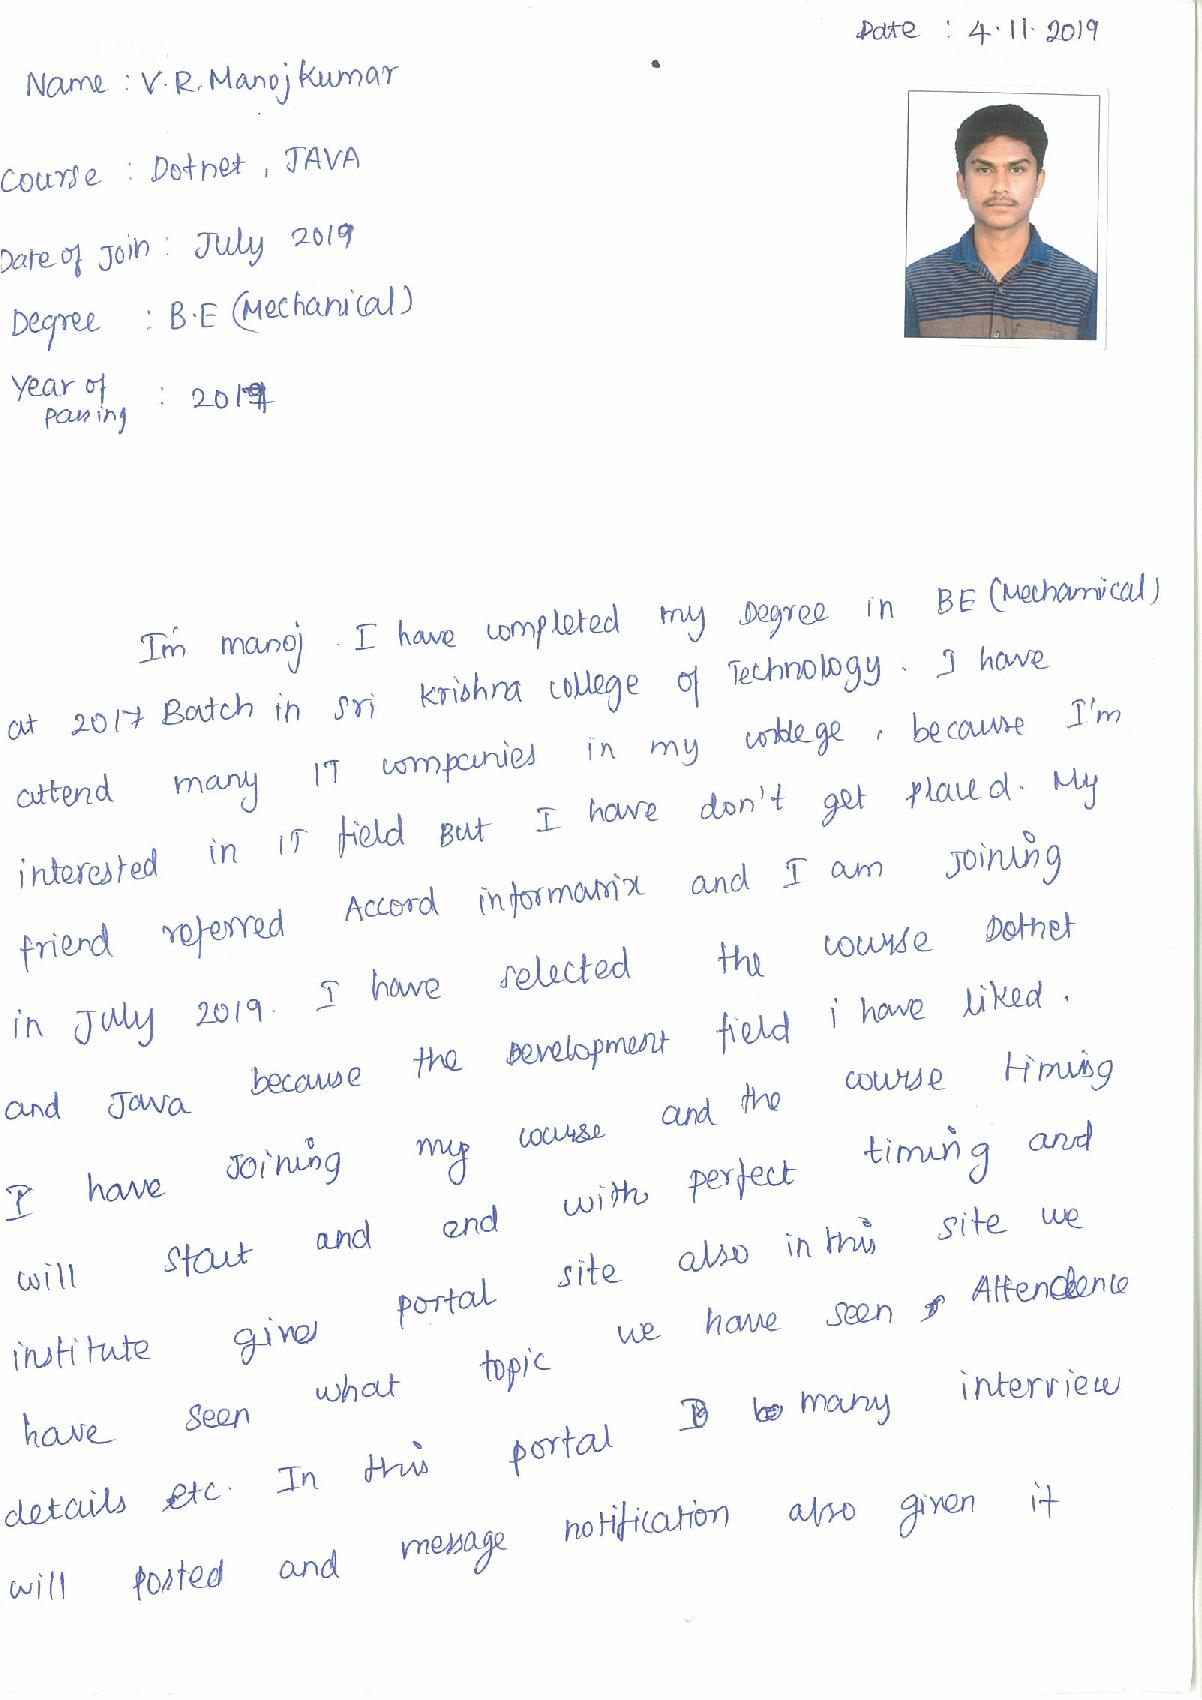 Date : 4.11.2019
Name : V.R.Manojkumar
Course : Dotnet, JAVA
Date of Join : July 2019
Degree : B.E (Mechanical)
Year of
passing : 2017
I'm manoj. I have completed my Degree in BE (Mechanical)
at 2017 Batch in Sri Krishna college of Technology. I have
attend many IT companies in my college, because I'm
interested in IT field But I have don't get placed. My
friend referred Accord informatrix and I am Joining
in July 2019. I have selected the course Dotnet
and Java because the Development field i have liked.
I have Joining my course and the course timing
will start and end with perfect timing and
institute gives portal site also in this site we
have seen what topic we have seen Attendence
details etc. In this portal many interview
will posted and message notification also given it